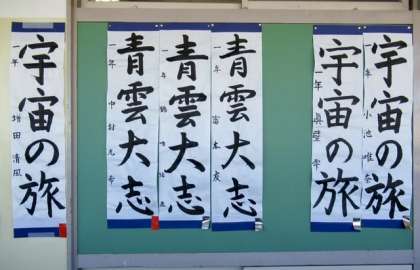 宇宙の旅
一年 増田清風
青雲大志
一年 中村
青雲大志
一年
青雲大志
一年 富本友
宇宙の旅
一年 眞壁
宇宙の旅
一年 小池唯奈